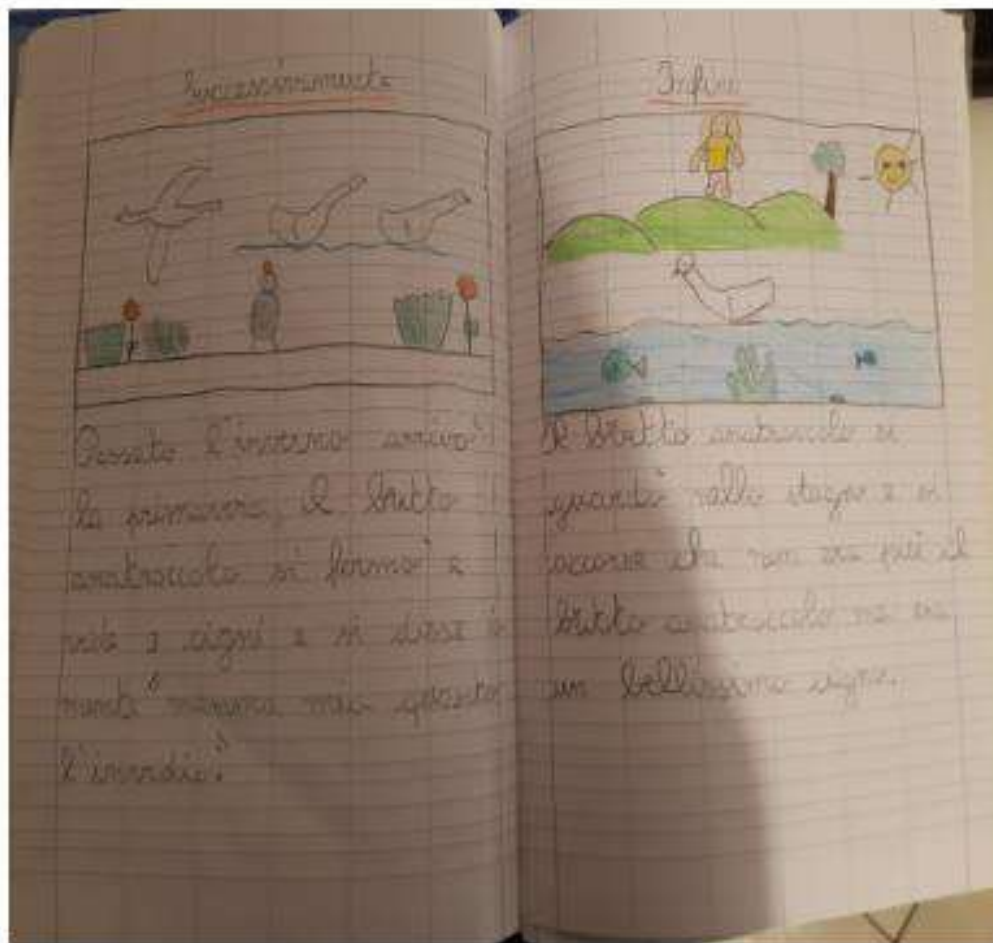 Successivamente
Passato l'inverno arrivò
la primavera, il brutto
anatroccolo si fermò e
vide i cigni e si disse in
mente "
l'invidia"
Infine
Il brutto anatroccolo si
guardò nello stagno e si
accorse che non era più il
brutto anatroccolo ma era
un bellissimo cigno.